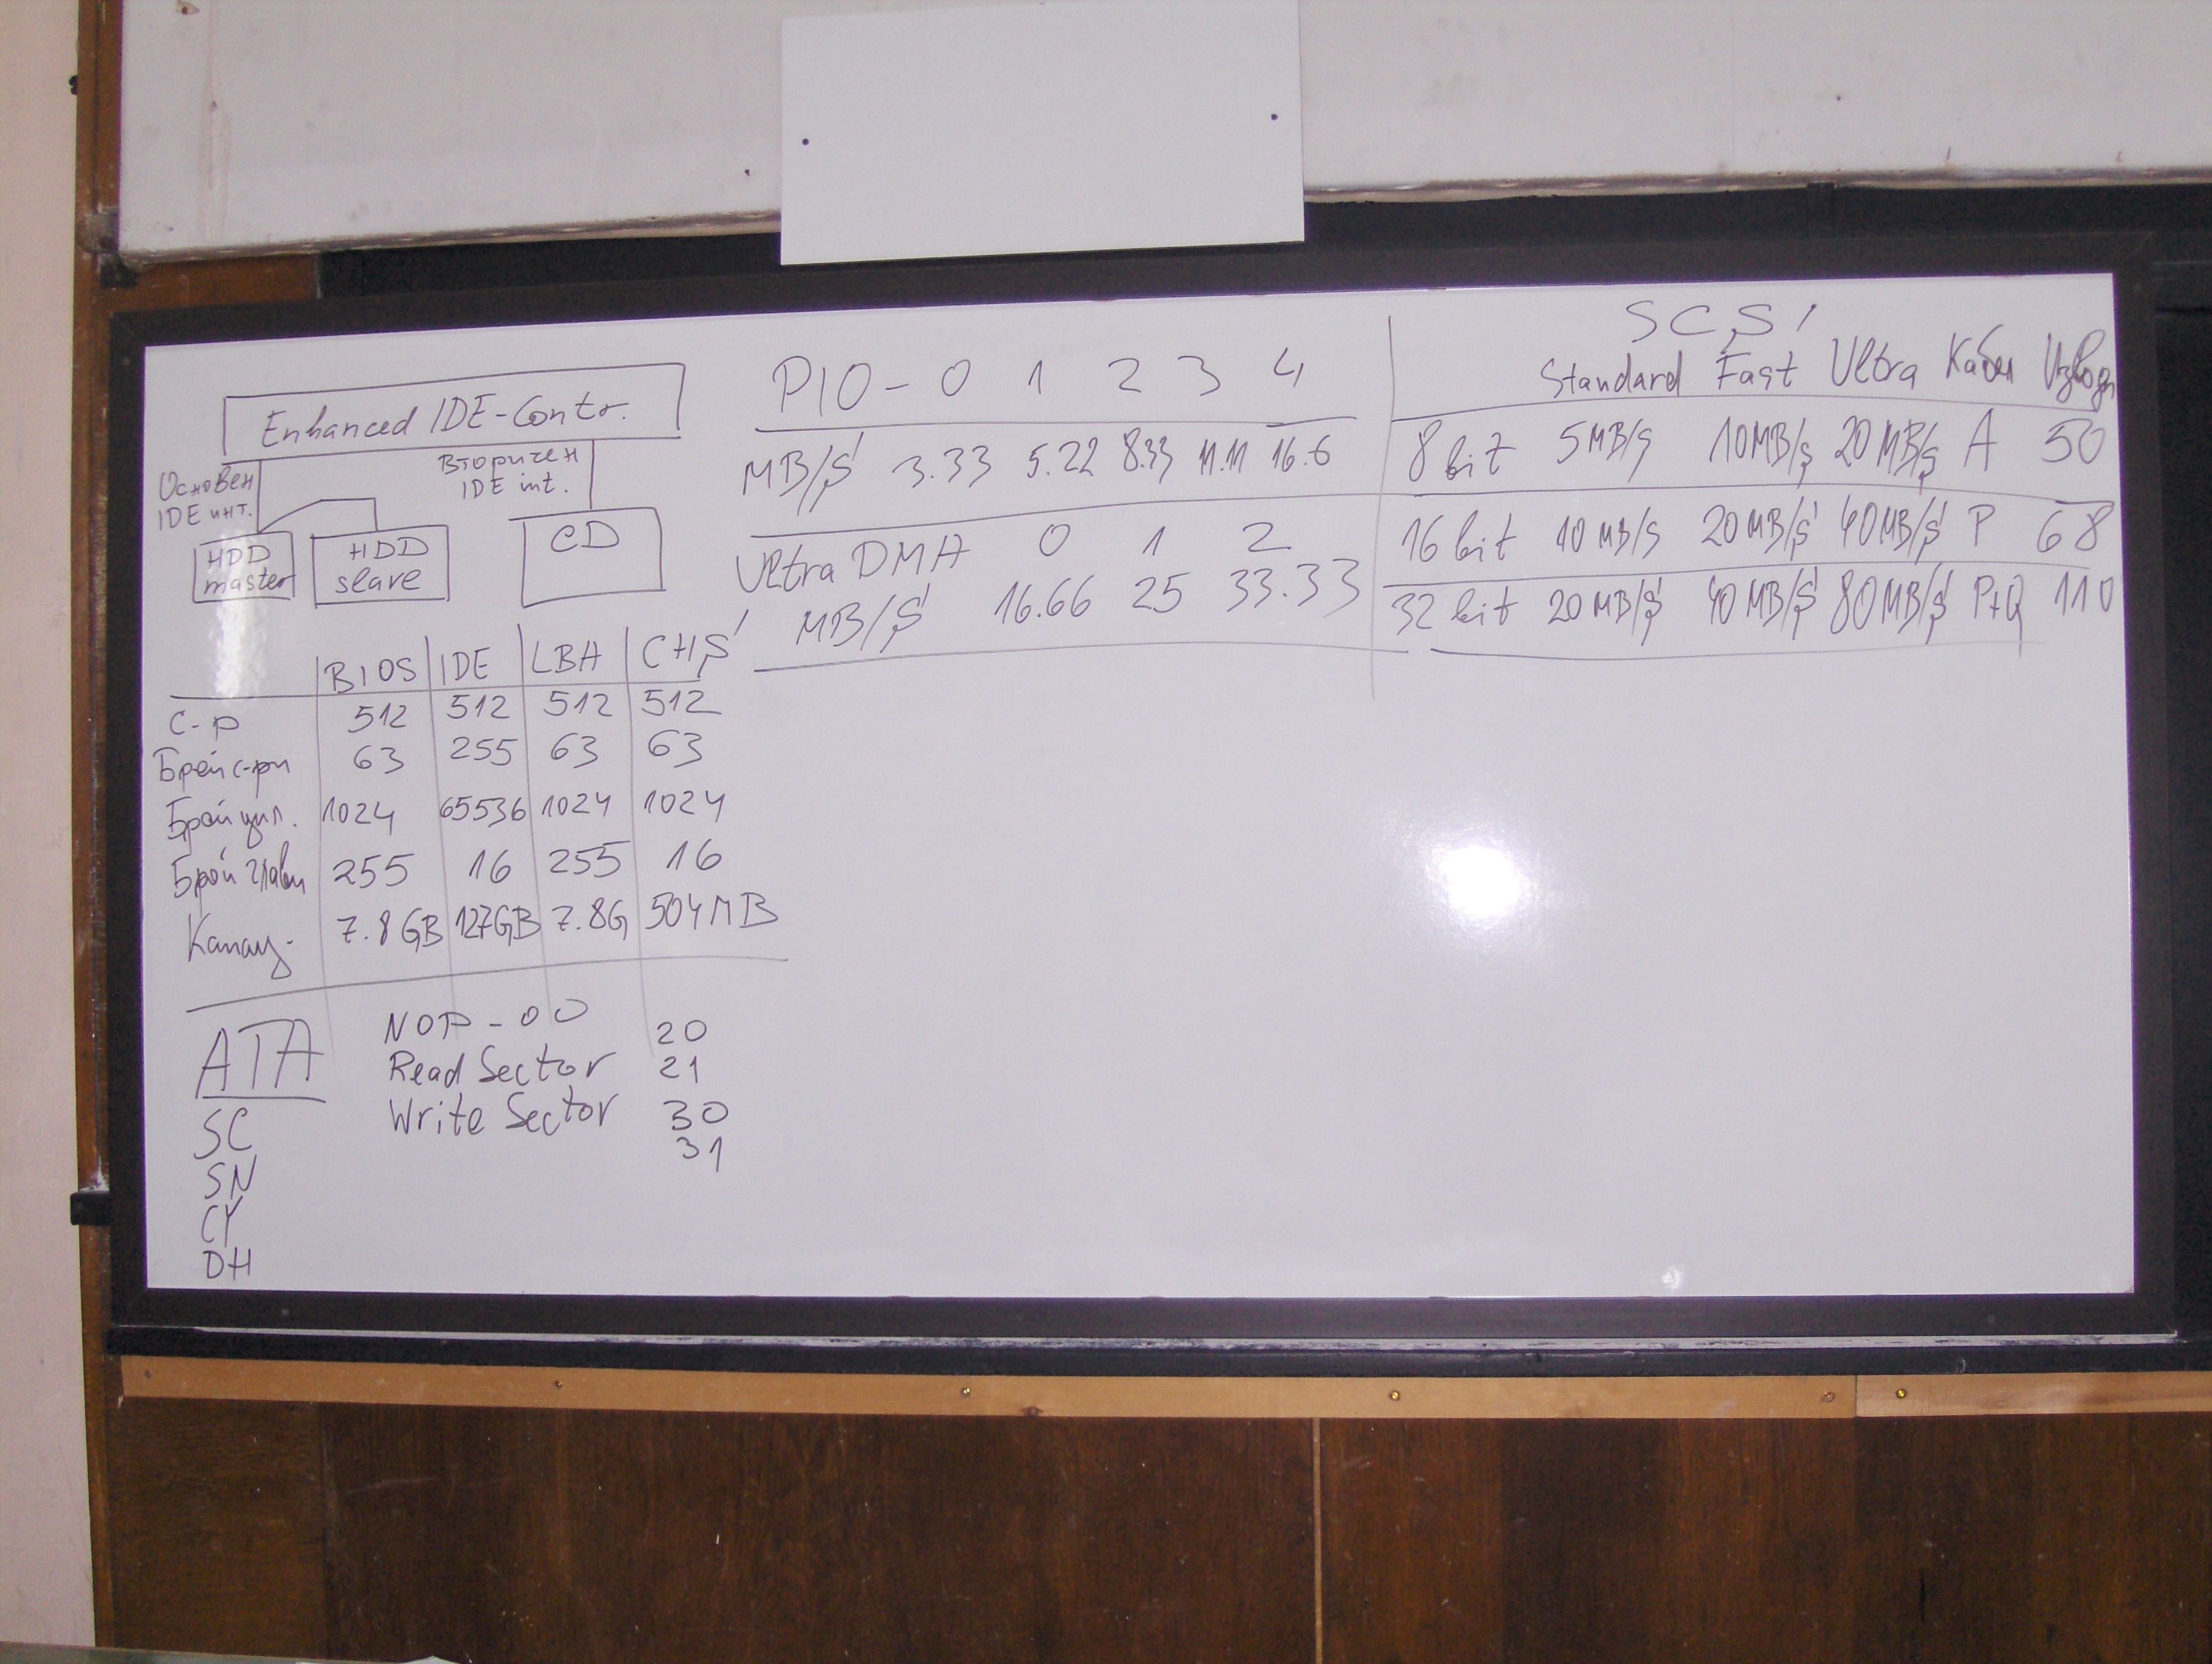 Enhanced IDE-Contr.
Основен
IDE инт.
Вторичен
IDE int.
HDD
master
HDD
slave
CD
BIOS IDE LBA CHS
С-р 512 512 512 512
Брой с-ри 63 255 63 63
Брой цил. 1024 65536 1024 1024
Брой глави 255 16 255 16
Капац. 7.8 GB 127GB 7.8G 504MB
ATA
SC
SN
CY
DH
NOP - 00
Read Sector 20
21
Write Sector 30
31
PIO - 0 1 2 3 4
MB/S 3.33 5.22 8.33 11.11 16.6
Ultra DMA 0 1 2
MB/S 16.66 25 33.33
SCSI
Standard Fast Ultra Кабел Изводи
8 bit 5MB/s 10MB/s 20MB/s A 50
16 bit 10 MB/s 20MB/s 40MB/s P 68
32 bit 20 MB/s 40 MB/s 80MB/s P+Q 110